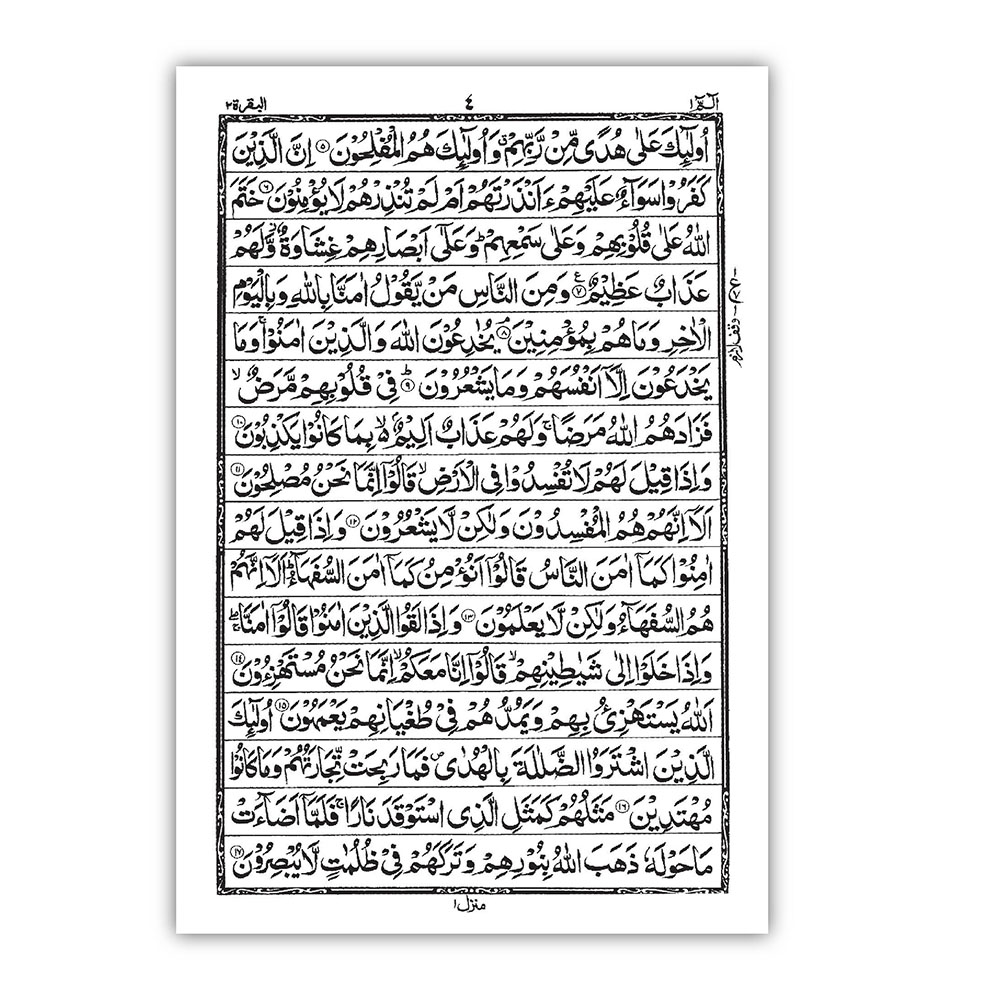 الٓمّٓ ١ ٤ البقرة ٢
اُولٰٓئِكَ عَلٰى هُدًى مِّنْ رَّبِّهِمْ ۙ وَاُولٰٓئِكَ هُمُ الْمُفْلِحُوْنَ ۝٥ اِنَّ الَّذِيْنَ
كَفَرُوْا سَوَآءٌ عَلَيْهِمْ ءَاَنْذَرْتَهُمْ اَمْ لَمْ تُنْذِرْهُمْ لَا يُؤْمِنُوْنَ ۝٦ خَتَمَ
اللّٰهُ عَلٰى قُلُوْبِهِمْ وَعَلٰى سَمْعِهِمْ ؕ وَعَلٰٓى اَبْصَارِهِمْ غِشَاوَةٌ ۡ وَّلَهُمْ
عَذَابٌ عَظِيْمٌ ۝٧ ع وَمِنَ النَّاسِ مَنْ يَّقُوْلُ اٰمَنَّا بِاللّٰهِ وَبِالْيَوْمِ
الْاٰخِرِ وَمَا هُمْ بِمُؤْمِنِيْنَ ۝٨ ۘ يُخٰدِعُوْنَ اللّٰهَ وَالَّذِيْنَ اٰمَنُوْا ۚ وَمَا
يَخْدَعُوْنَ اِلَّآ اَنْفُسَهُمْ وَمَا يَشْعُرُوْنَ ۝٩ ؕ فِيْ قُلُوْبِهِمْ مَّرَضٌ ۙ
فَزَادَهُمُ اللّٰهُ مَرَضًا ۚ وَلَهُمْ عَذَابٌ اَلِيْمٌ ۢ ۙ بِمَا كَانُوْا يَكْذِبُوْنَ ۝١٠
وَاِذَا قِيْلَ لَهُمْ لَا تُفْسِدُوْا فِى الْاَرْضِ ۙ قَالُوْٓا اِنَّمَا نَحْنُ مُصْلِحُوْنَ ۝١١
اَلَآ اِنَّهُمْ هُمُ الْمُفْسِدُوْنَ وَلٰكِنْ لَّا يَشْعُرُوْنَ ۝١٢ وَاِذَا قِيْلَ لَهُمْ
اٰمِنُوْا كَمَآ اٰمَنَ النَّاسُ قَالُوْٓا اَنُؤْمِنُ كَمَآ اٰمَنَ السُّفَهَآءُ ؕ اَلَآ اِنَّهُمْ
هُمُ السُّفَهَآءُ وَلٰكِنْ لَّا يَعْلَمُوْنَ ۝١٣ وَاِذَا لَقُوا الَّذِيْنَ اٰمَنُوْا قَالُوْٓا اٰمَنَّا ۚ
وَاِذَا خَلَوْا اِلٰى شَيٰطِيْنِهِمْ ۙ قَالُوْٓا اِنَّا مَعَكُمْ ۙ اِنَّمَا نَحْنُ مُسْتَهْزِءُوْنَ ۝١٤
اَللّٰهُ يَسْتَهْزِئُ بِهِمْ وَيَمُدُّهُمْ فِيْ طُغْيَانِهِمْ يَعْمَهُوْنَ ۝١٥ اُولٰٓئِكَ
الَّذِيْنَ اشْتَرَوُا الضَّلٰلَةَ بِالْهُدٰى ۪ فَمَا رَبِحَتْ تِّجَارَتُهُمْ وَمَا كَانُوْا
مُهْتَدِيْنَ ۝١٦ مَثَلُهُمْ كَمَثَلِ الَّذِى اسْتَوْقَدَ نَارًا ۚ فَلَمَّآ اَضَآءَتْ
مَا حَوْلَهٗ ذَهَبَ اللّٰهُ بِنُوْرِهِمْ وَتَرَكَهُمْ فِيْ ظُلُمٰتٍ لَّا يُبْصِرُوْنَ ۝١٧
وقف لازم
منزل ١